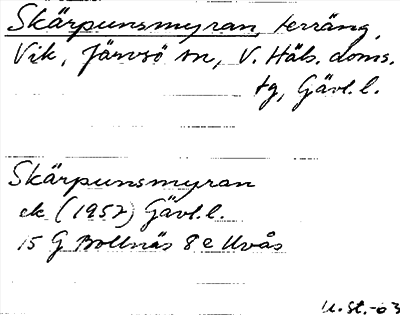 Skärpunsmyran, terräng,
Vik, Järvsö sn, V. Häls. doms.
tg, Gävl. l.
Skärpunsmyran
ek (1952) Gävl. l.
15 G Bollnäs 8 e Uvås
U. St. -03